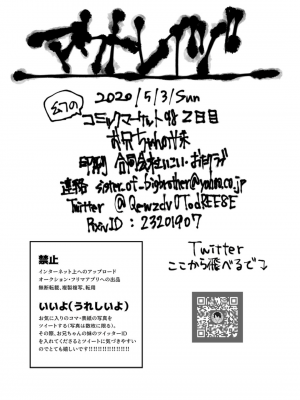 幻の
2020/5/3/Sun
コミックマーケット98 2日目
お兄ちゃんの妹
連絡 sister.of-bigbrother@yahoo.co.jp
Twitter
Pixiv ID : 23201907
Twitter
ここから飛べるで
禁止
インターネット上へのアップロード
オークション・フリマアプリへの出品
無断転載、複製複写、転用
いいよ(うれしいよ)
お気に入りのコマ・表紙の写真を
ツイートする(写真は数枚に限る)。
その際、お兄ちゃんの妹のツイッターID
を入れてくださるとツイートに気づきやすい
のでとても嬉しいです!!!!!!!!!!!!!!!!!